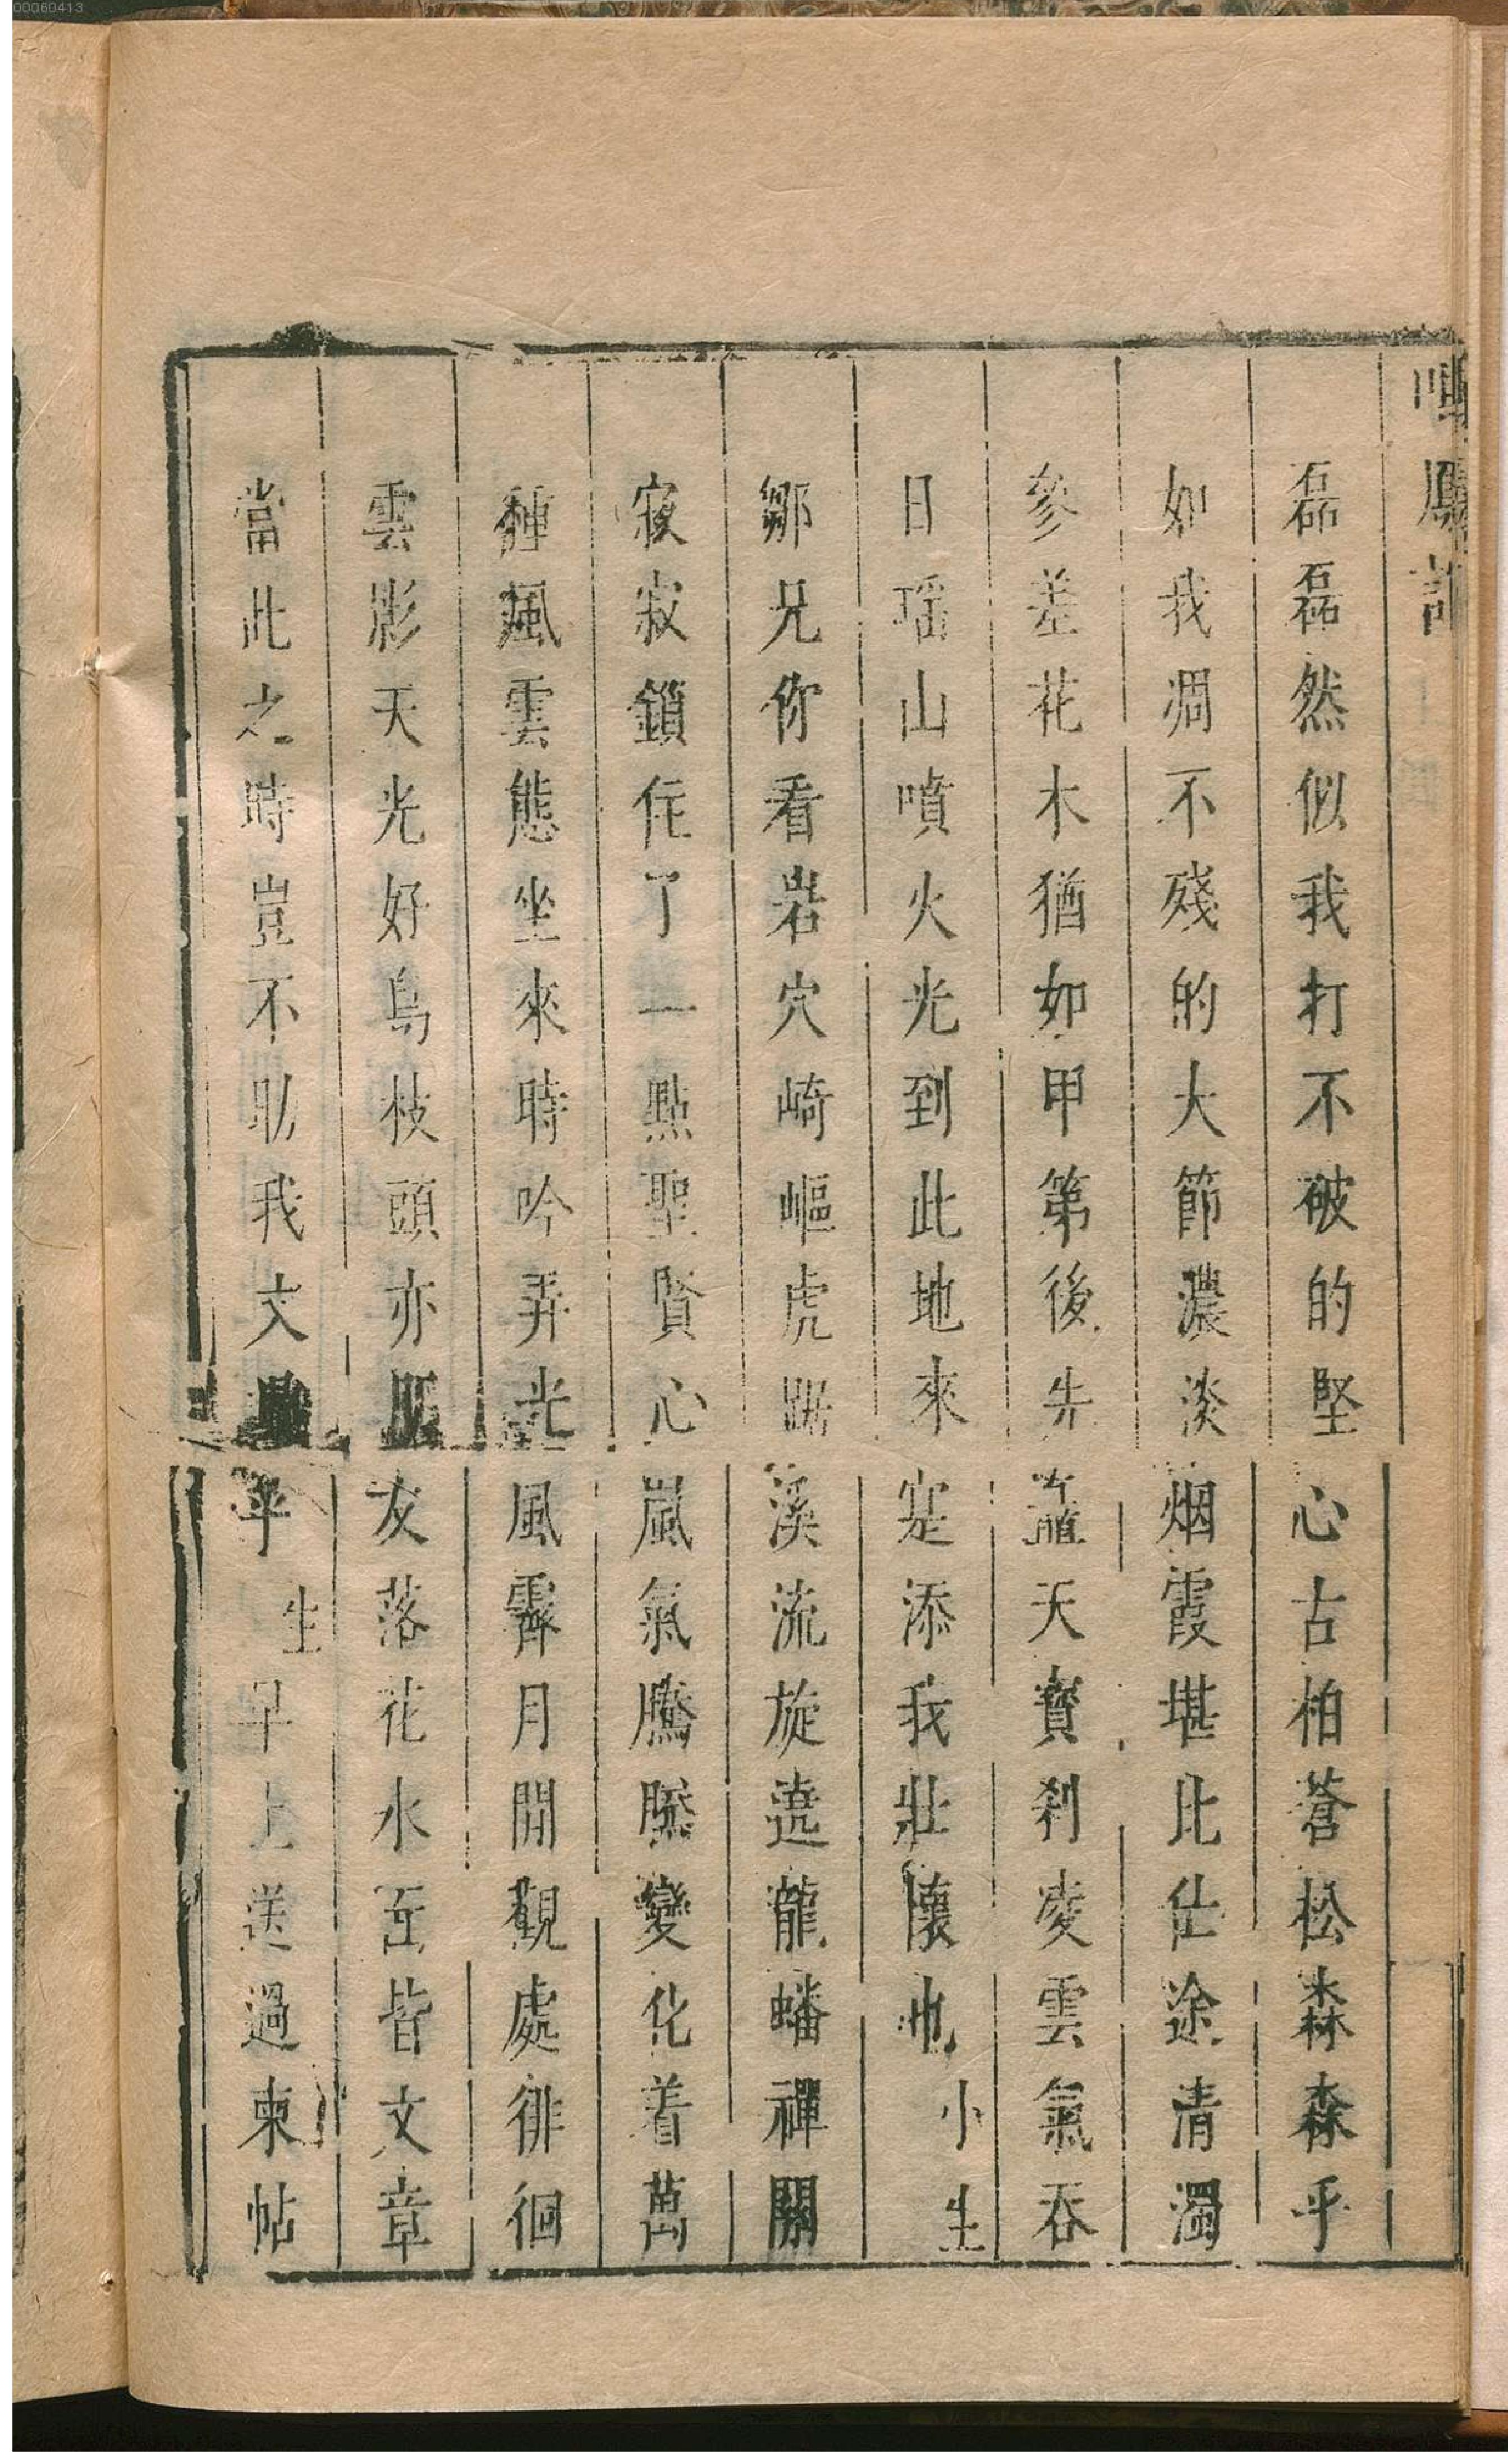 00060413
鳴鳳記
磊磊然似我打不破的堅心古柏蒼松森森乎
如我凋不殘的大節濃淡烟霞堪比仕途清濁
參差花木猶如甲第後先矗天寶剎凌雲氣吞
日瑶山噴火光到此地來寔添我壯懷也小生
鄒兄你看岩穴崎嶇虎踞溪流旋遶龍蟠禪關
寂寂鎖住了一點聖賢心嵐氣騰騰變化着萬
種風雲態坐來時吟弄光風霽月閒觀處徘徊
雲影天光好鳥枝頭亦朋友落花水面皆文章
當此之時豈不助我文興乎生早上送過柬帖